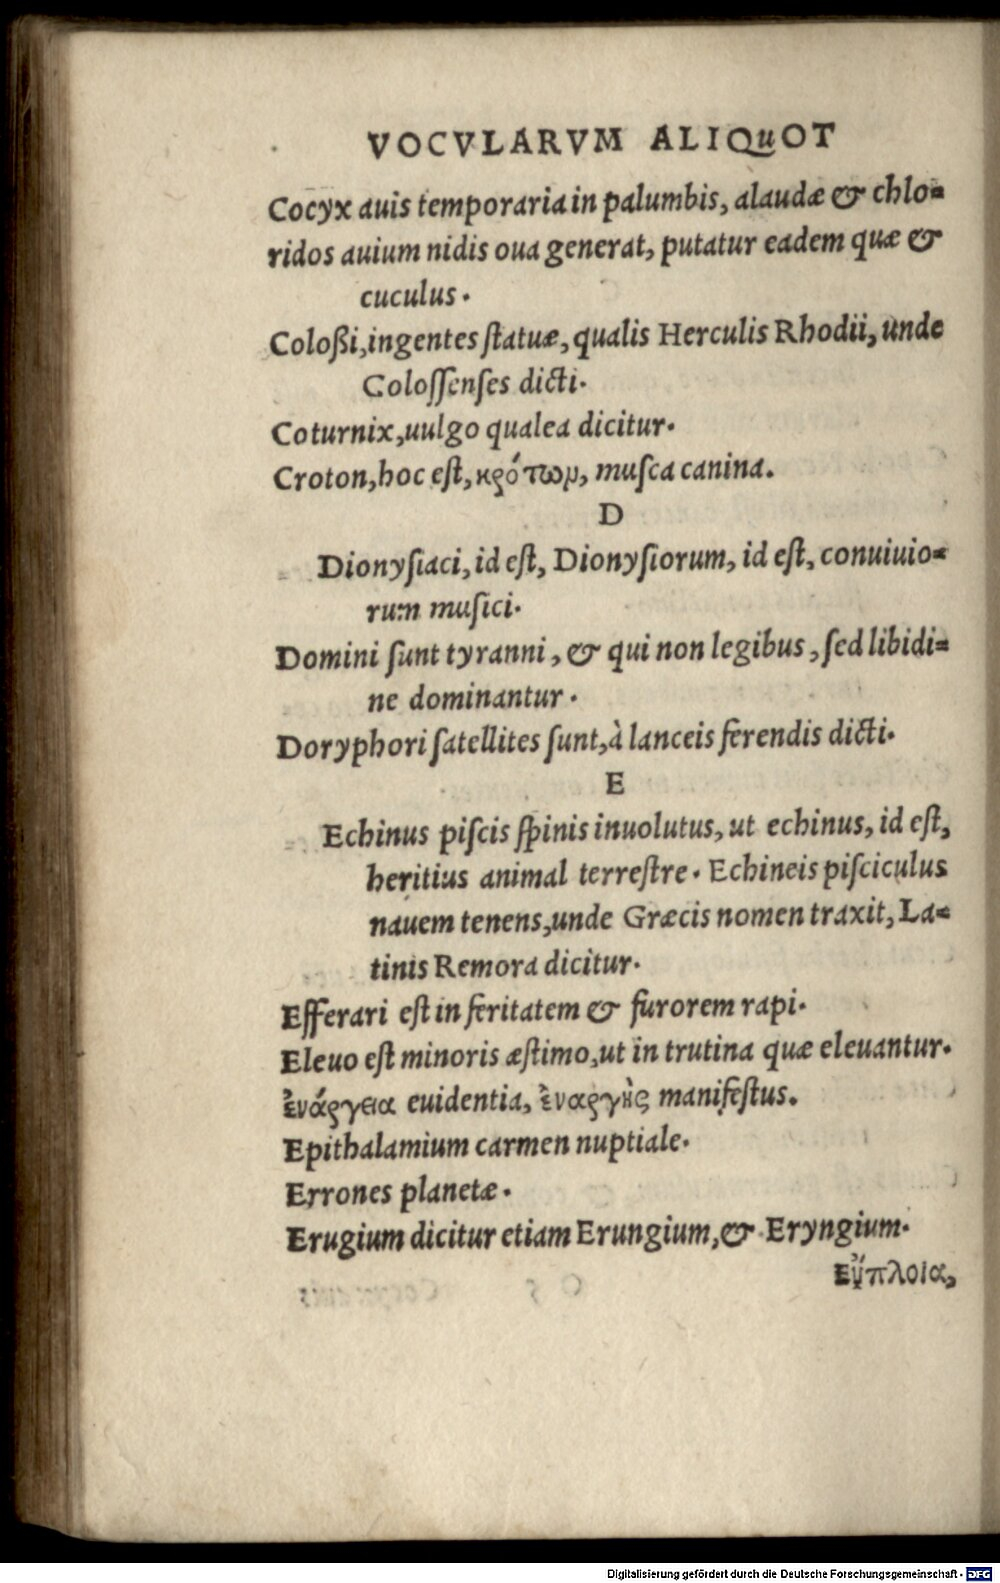 VOCVLARVM ALIQuOT
Cocyx auis temporaria in palumbis, alaudæ & chlo=
ridos auium nidis oua generat, putatur eadem quæ &
cuculus.
Coloßi, ingentes ſtatuæ, qualis Herculis Rhodii, unde
Coloſſenſes dicti.
Coturnix, uulgo qualea dicitur.
Croton, hoc eſt, κρότωρ, muſca canina.
D
Dionyſiaci, id eſt, Dionyſiorum, id eſt, conuiuio=
rum muſici.
Domini ſunt tyranni, & qui non legibus, ſed libidi=
ne dominantur.
Doryphori ſatellites ſunt, à lanceis ferendis dicti.
E
Echinus piſcis ſpinis inuolutus, ut echinus, id eſt,
heritius animal terreſtre. Echineis piſciculus
nauem tenens, unde Græcis nomen traxit, La=
tinis Remora dicitur.
Efferari eſt in feritatem & furorem rapi.
Eleuo eſt minoris æſtimo, ut in trutina quæ eleuantur.
ἐνάργεια euidentia, ἐναργὴς manifeſtus.
Epithalamium carmen nuptiale.
Errones planetæ.
Erugium dicitur etiam Erungium, & Eryngium.
Εὔπλοια,
Digitalisierung gefördert durch die Deutsche Forschungsgemeinschaft - DFG